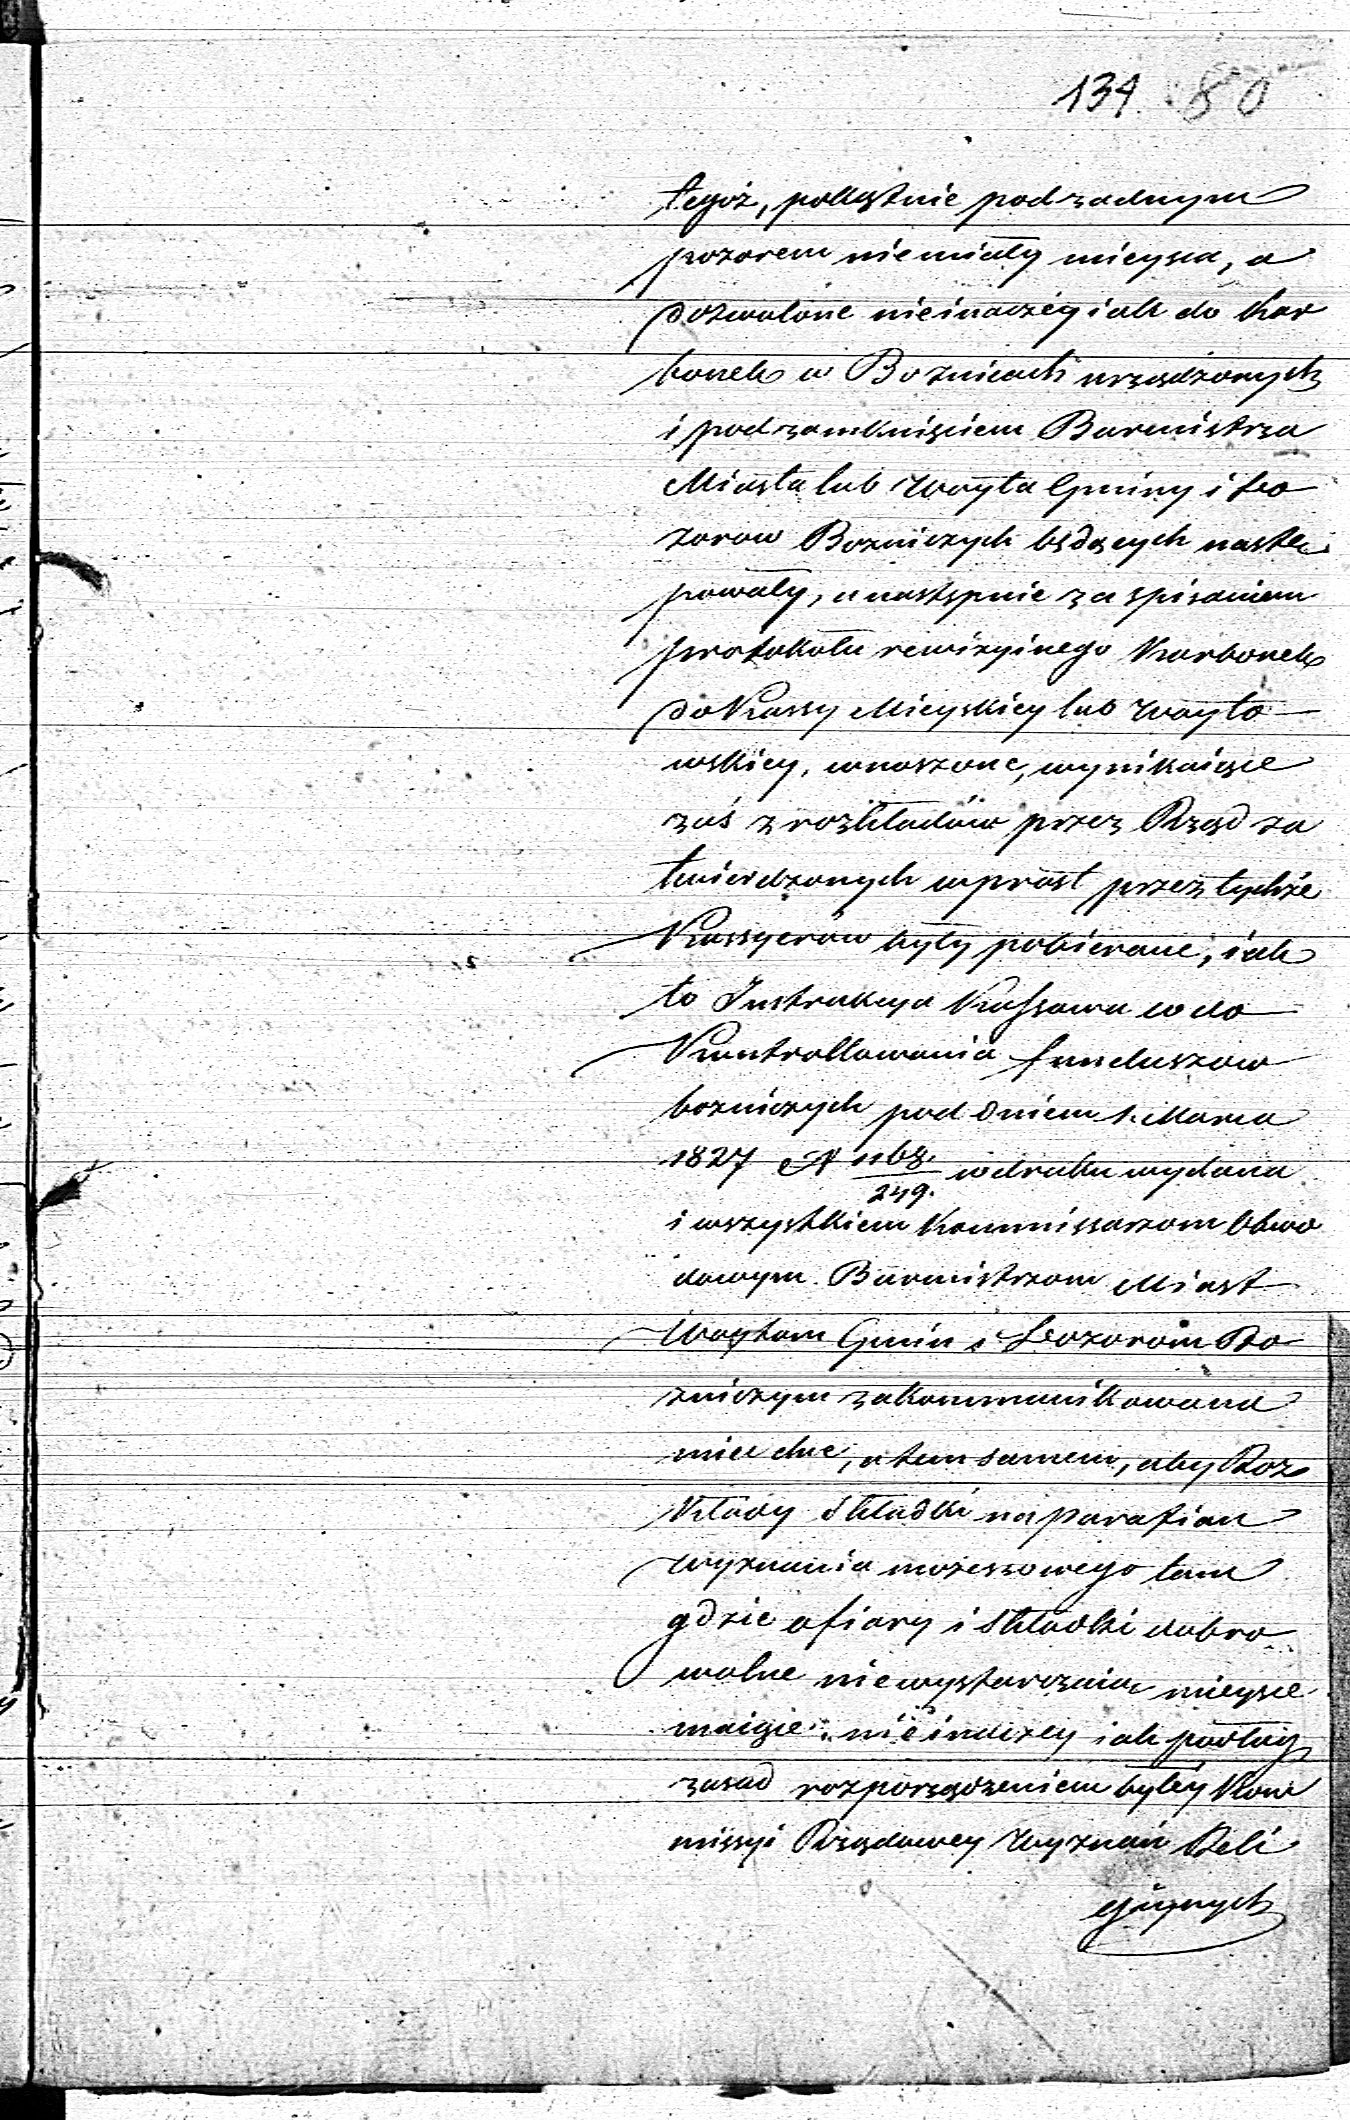 134. 80
tegoż, pokątnie pod żadnym
pozorem niemiały mieysca, a
dozwolone nieinaczéy iak do Kar
bonek w Boznicach urządzonych
i pod zamknięciem Burmistrza
Miasta lub Woyta Gminy i Do
zorow Bozniczych będących nastę
powały, a następnie za spisaniem
protokołu rewizyinego Karbonek
do Kassy Mieyskiey lub Woyto
wskiey, wnoszone, wynikaiące
zaś z rozkładów przez Rząd za
twierdzonych wprost przez tychże
Kassyerów były pobierane, iak
to Instrukcya Kassowa co do
Kontrollowania funduszow
bozniczych pod dniem 1. Marca
1827 N 1168./249. w druku wydana
i wszystkiem Kommissarzom Obwo
dowym Burmistrzom Miast
Woytom Gmin i Dozorom Bo
zniczym zakommunikowana
mieć chce, a tem samem, aby Roz
kłady Składki na parafian
wyznania mozeszowego tam
gdzie ofiary i składki dobro
wolne niewystarczaią mieysce
maiące, nieinaczey iak podług
zasad rozporządzeniem byłey Kom
missyi Rządowey Wyznań Reli
giynych